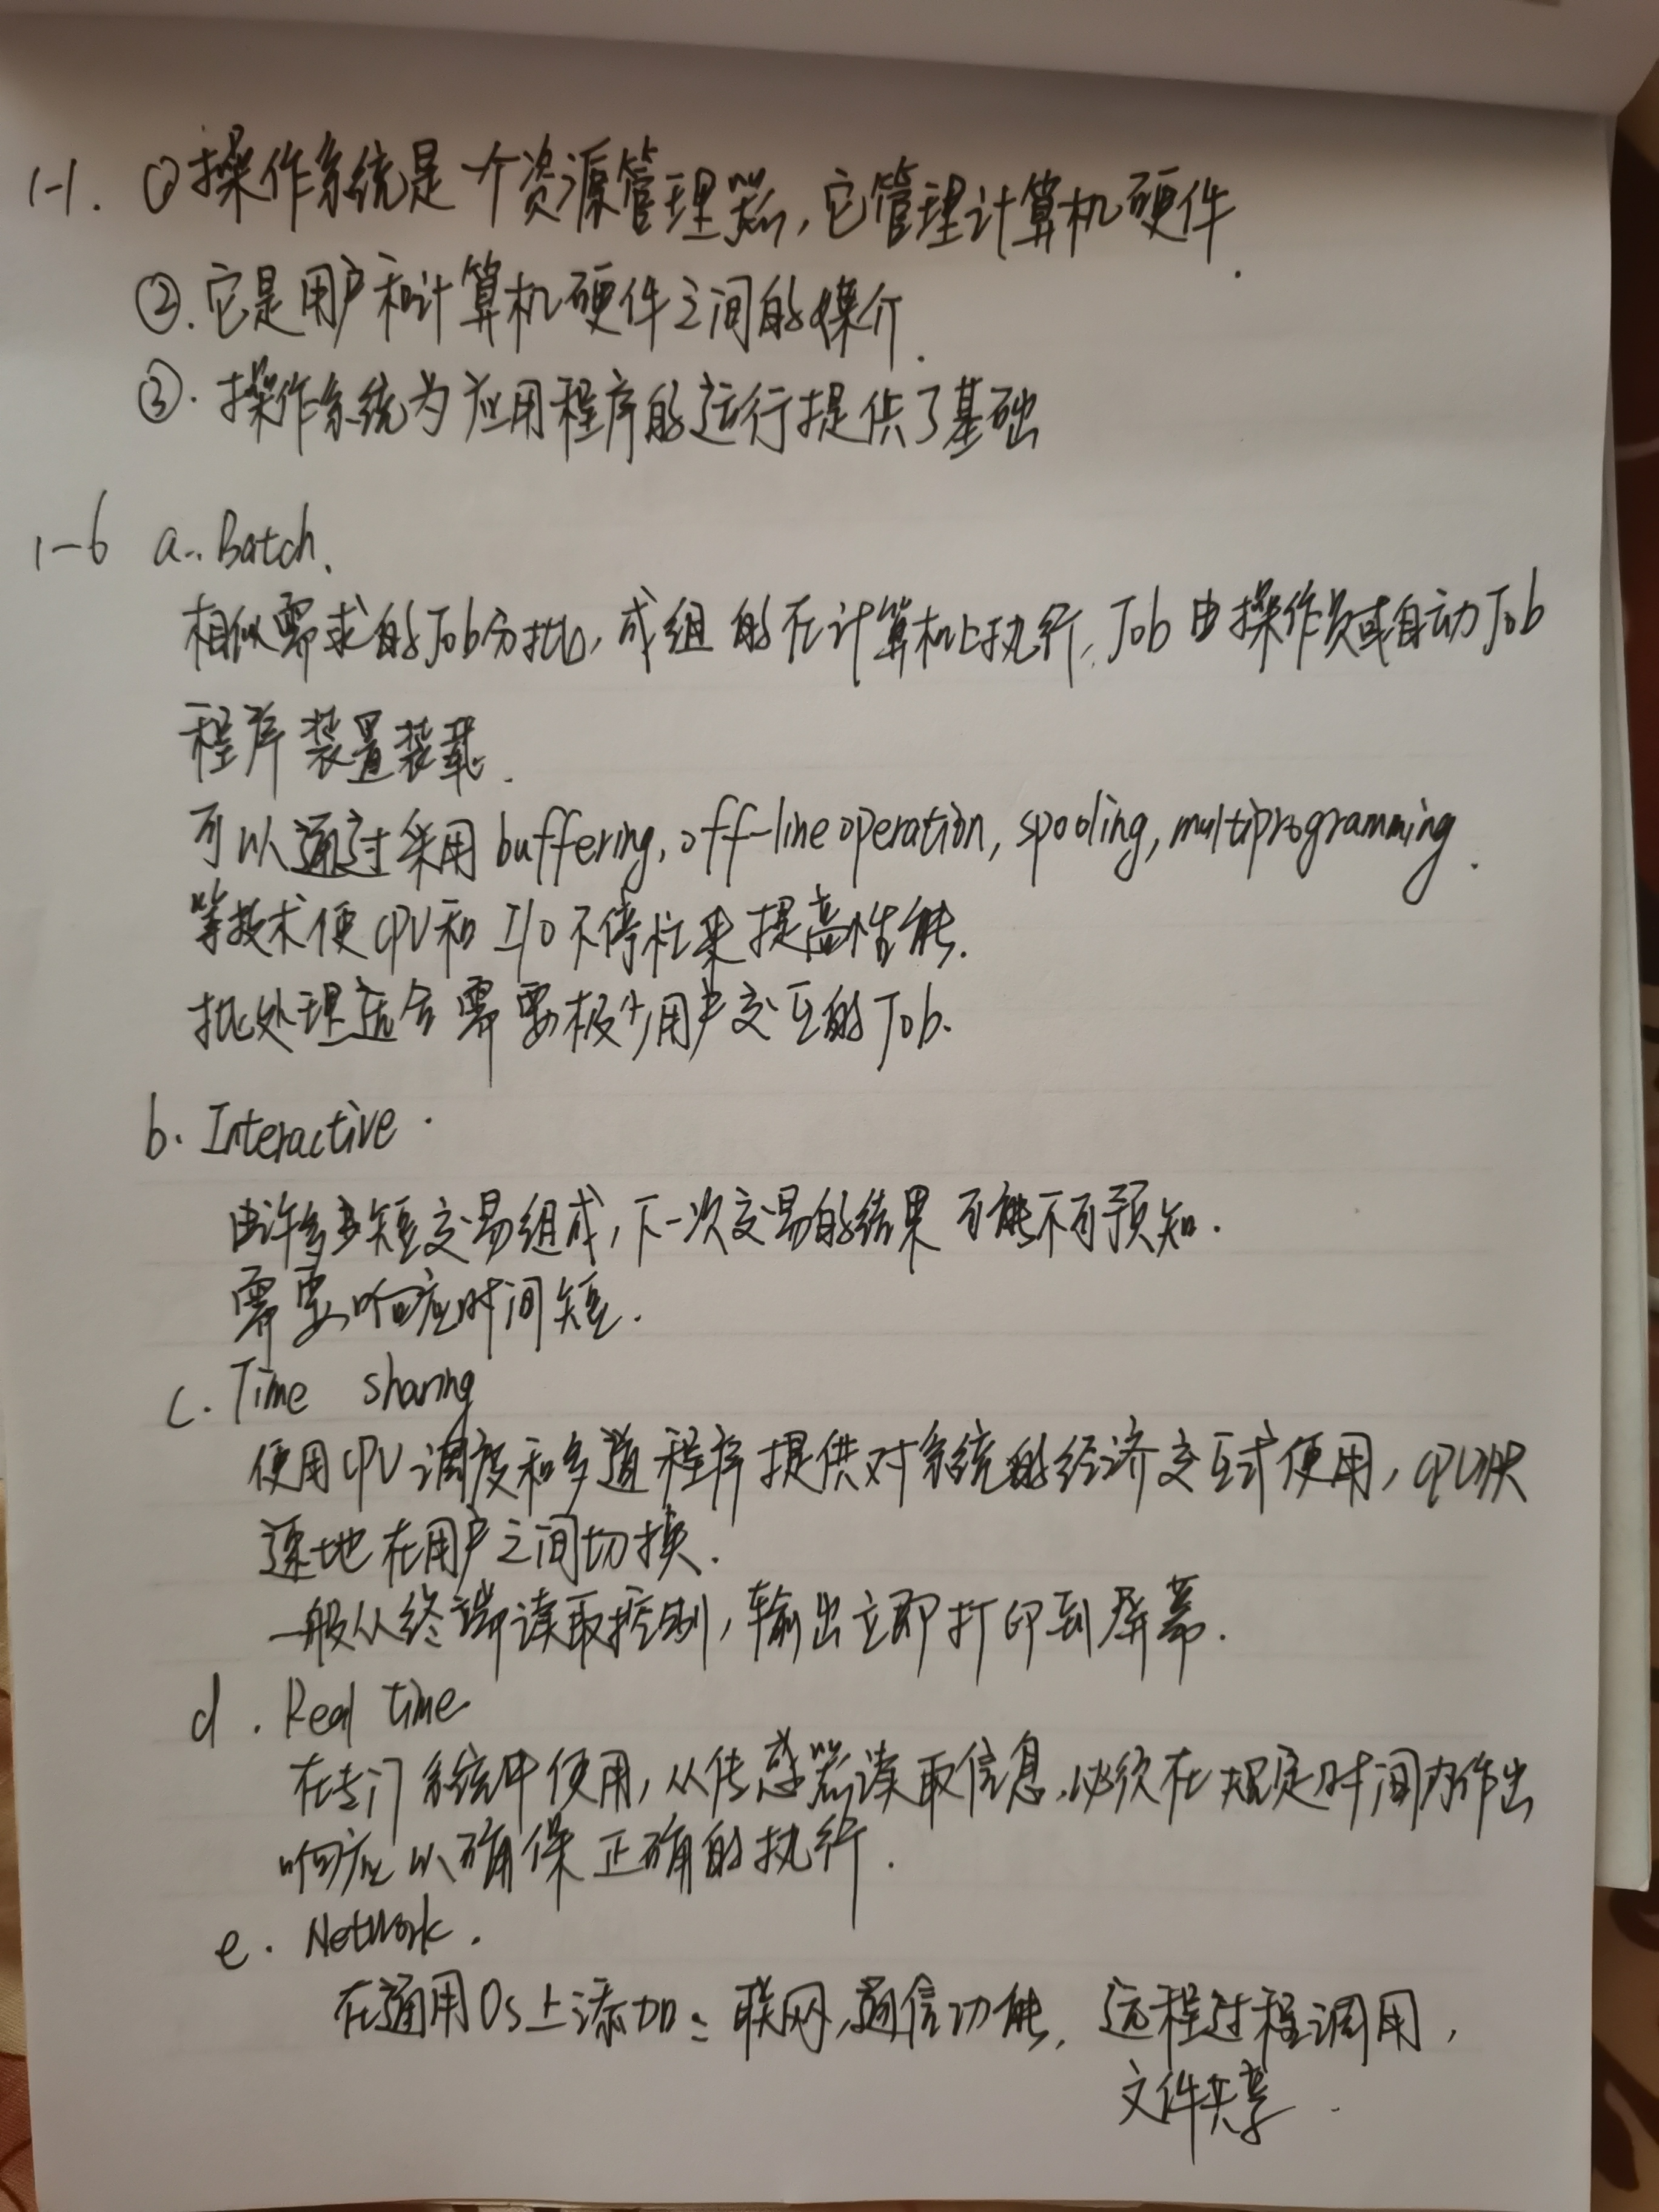 1-1. ①操作系统是一个资源管理器,它管理计算机硬件.
②.它是用户和计算机硬件之间的媒介.
③.操作系统为应用程序的运行提供了基础
1-6 a.. Batch.
相似需求的Job分批,成组的在计算机上执行,Job由操作员或自动Job
程序装置装载.
可以通过采用buffering, off-line operation, spooling, multiprogramming.
等技术使CPU和I/O不停忙来提高性能.
批处理适合需要极少用户交互的Job.
b. Interactive.
由许多短交易组成,下一次交易的结果可能不可预知.
需要响应时间短.
c. Time sharing
使用CPU调度和多道程序提供对系统的经济交互式使用,CPU快
速地在用户之间切换.
一般从终端读取控制,输出立即打印到屏幕.
d. Real time
在专门系统中使用,从传感器读取信息,必须在规定时间内作出
响应以确保正确的执行.
e. Network.
在通用OS上添加:联网,通信功能,远程过程调用,
文件共享.